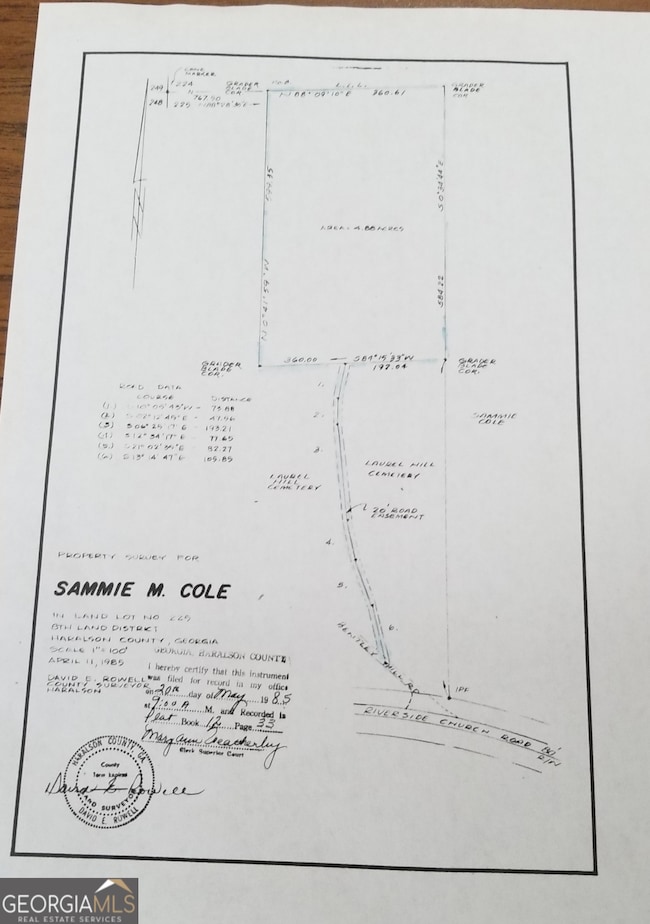 LAND
MARKER
249
224
248
225
N
GRADER
BLADE
COR.
L.L.L.
N 88° 09' 10" E 360.61
GRADER
BLADE
COR.
AREA = 4.88 ACRES
584.22
GRADER
BLADE
COR.
360.00
S 89° 15' 33" W
192.04
GRADER
BLADE
COR.
ROAD DATA
COURSE DISTANCE
(1) 73.88
(2) 47.96
(3) S 06° 25' 17" E - 193.21
(4) S 12° 34' 17" E - 77.65
(5) 92.27
(6) S 19° 14' 47" E 105.89
1.
2.
3.
4.
5.
6.
SAMMIE
COLE
LAUREL HILL
CEMETERY
LAUREL
HILL
CEMETERY
20' ROAD
EASEMENT
PROPERTY SURVEY FOR
SAMMIE M. COLE
IN LAND LOT NO 225
8TH LAND DISTRICT
HARALSON COUNTY, GEORGIA
SCALE 1" = 100'
APRIL 11, 1985
DAVID E. ROWELL
COUNTY SURVEYOR
HARALSON
GEORGIA, HARALSON COUNTY
I hereby certify that this instrument
was filed for record in my office
on 20th day of May 1985
at 9:00 A M. and Recorded in
Plat Book 12 Page 33
Mary Ann Weatherby
Clerk Superior Court
HARALSON COUNTY GA
County
Term Expires
LAND SURVEYOR
DAVID E. ROWELL
David E. Rowell
IPF
RIVERSIDE CHURCH ROAD 80'
R/W
GEORGIAMLS
REAL ESTATE SERVICES